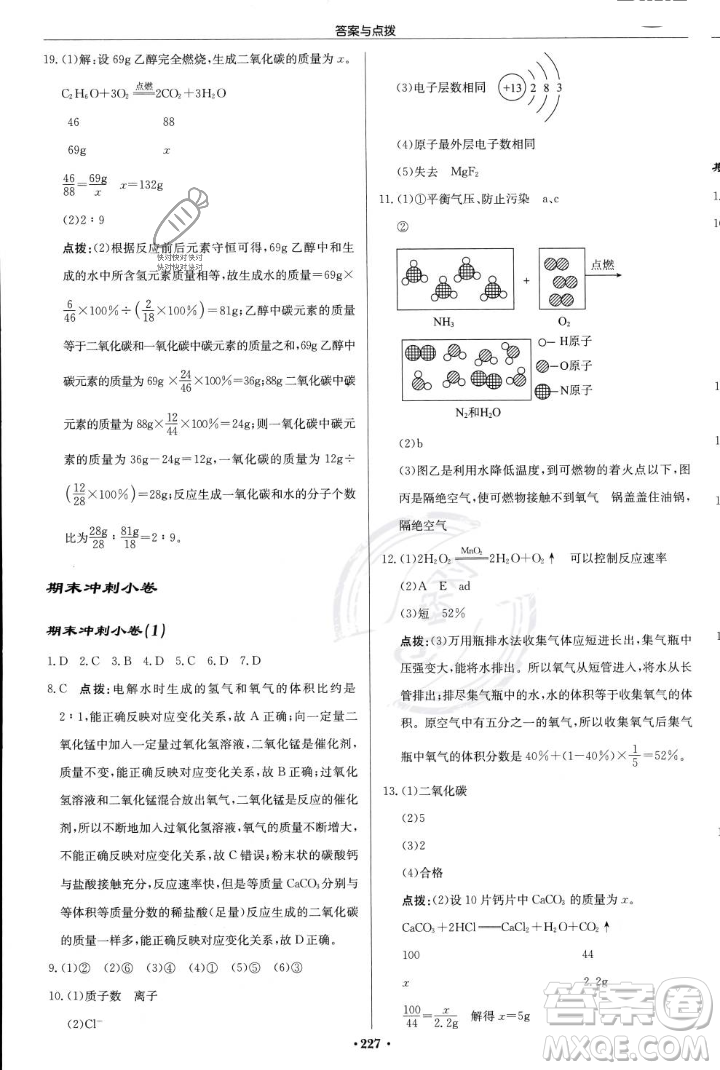 答案与点拨
19. (1)解：设 69g 乙醇完全燃烧，生成二氧化碳的质量为 x。
C₂H₆O+3O₂ =点燃= 2CO₂+3H₂O
46 88
69g x
46/88=69g/x x=132g
(2)2∶9
点拨：(2)根据反应前后元素守恒可得，69g 乙醇中和生
成的水中所含氢元素质量相等，故生成水的质量=69g×
6/46×100%÷(2/18×100%)=81g；乙醇中碳元素的质量
等于二氧化碳和一氧化碳中碳元素的质量，故乙醇中碳
元素的质量为 69g×24/46×100%=36g；二氧化碳中碳元
素的质量为 88g×12/44×100%=24g；则一氧化碳中碳元
素的质量为 36g−24g=12g；一氧化碳的质量=12g÷
(12/28×100%)=28g；一氧化碳和水的分子个数
比为28g/28∶81g/18=2∶9。
快对快对快对
快对快对快对
期末冲刺小卷
期末冲刺小卷(1)
1. D 2. D 3. D 4. C 5. B 6. D 7. D
8. C 点拨：电解水时生成的氢气和氧气的体积比约是
2∶1，能正确反映对应变化关系，故 A 正确；向一定量二
氧化锰中加入一定量过氧化氢溶液，二氧化锰是催化剂，
质量不变，能正确反映对应变化关系，故 B 正确；过氧化
氢溶液和二氧化锰混合放出氧气，二氧化锰是反应的催化
剂，所以不断地加入过氧化氢溶液，氧气的质量不断增大，
不能正确反映对应变化关系，故 C 错误；粉末状的碳酸钙
与盐酸接触充分，反应速率快，但是等质量 CaCO₃ 分别与
等质量分数的稀盐酸(足量)反应生成的二氧化碳的
质量一样多，能正确反映对应变化关系，故 D 正确。
9. (1)② (2)⑥ (3)④ (4)① (5)③ (6)⑤
10. (1)质子数 离子
(2)Cl⁻
(3)电子层数相同 +13 2 8 3
(4)原子最外层电子数相同
(5)失去 MgF₂
11. (1)①平衡气压、防止污染 a、c
②
+ 点燃
NH₃ O₂
H原子
O原子
N原子
N₂和H₂O
(2)b
(3)图乙是利用水降低温度，到可燃物的着火点以下，图
丙是隔绝空气，使可燃物接触不到氧气 锅盖盖住油锅，
隔绝空气
12. (1)2H₂O₂ =MnO₂= 2H₂O+O₂↑ 可以控制反应速率
(2)A E ad
(3)短 52%
点拨：(3)万用瓶排水法收集气体应短进长出，集气瓶中
压强变大，气体将水从长管压出，故氧气从短管进入，水从
长管排出；排尽集气瓶中的水，水的体积等于收集氧气的体
积。原空气中有五分之一的氧气，所以收集氧气后集气
瓶中氧气的体积分数是 40%+(1−40%)×1/5=52%。
13. (1)二氧化碳
(2)5
(3)2
(4)合格
点拨：(2)设 10 片钙片中 CaCO₃ 的质量为 x。
CaCO₃+2HCl══CaCl₂+H₂O+CO₂↑
100 44
x 2.2g
100/44=x/2.2g 解得 x=5g
答案卷
MXQE.COM
• 227 •